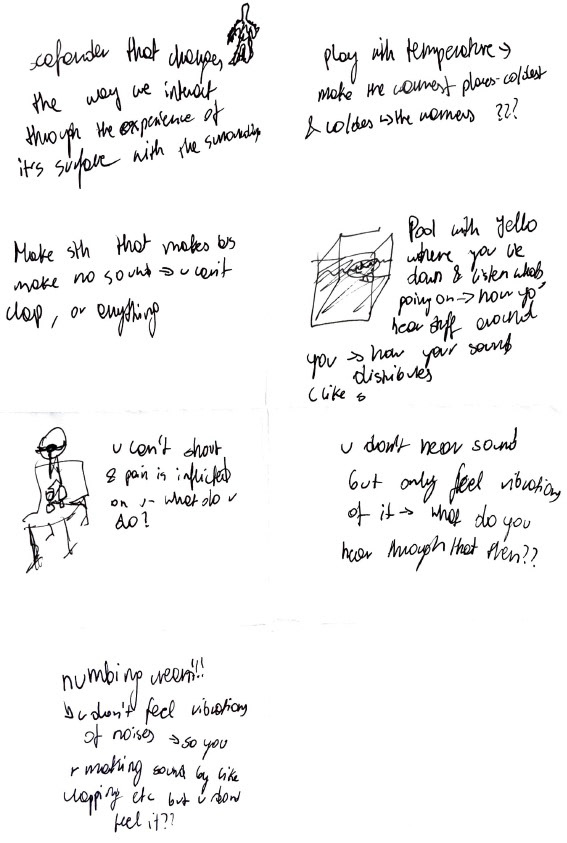 that changes
the way we interact
through the experience of
it's surface with the surrounding
play with temperature →
make the warmest places-coldest
& coldes → the warmers ???
Make sth that makes us
make no sound → u can't
clap, or anything
Pool with Jello
where you lie
down & listen whats
going on → how yo
hear stuff around
you → how your sound
distributes
(like s
u can't shout
& pain is inflicted
on u - what do u
do?
u don't hear sound
but only feel vibrations
of it → what do you
hear through that then??
numbing cream!!!
↳ u don't feel vibrations
of noises → so you
r making sound by like
clapping etc but u dont
feel it??